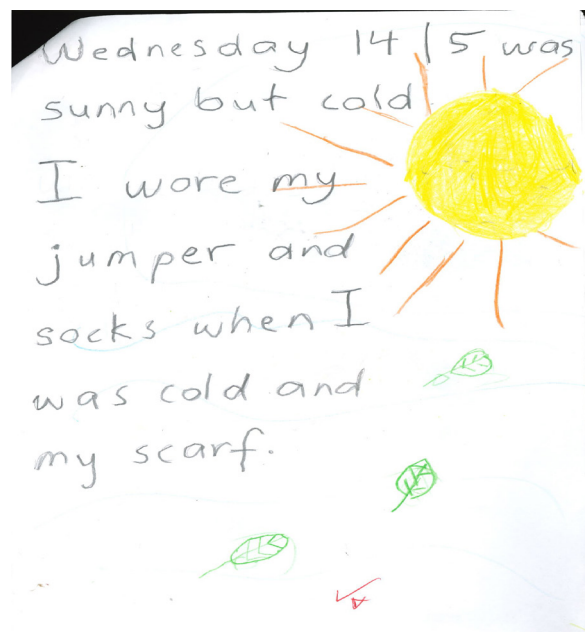 Wednesday 14/5 was
sunny but cold
I wore my
jumper and
socks when I
was cold and
my scarf.